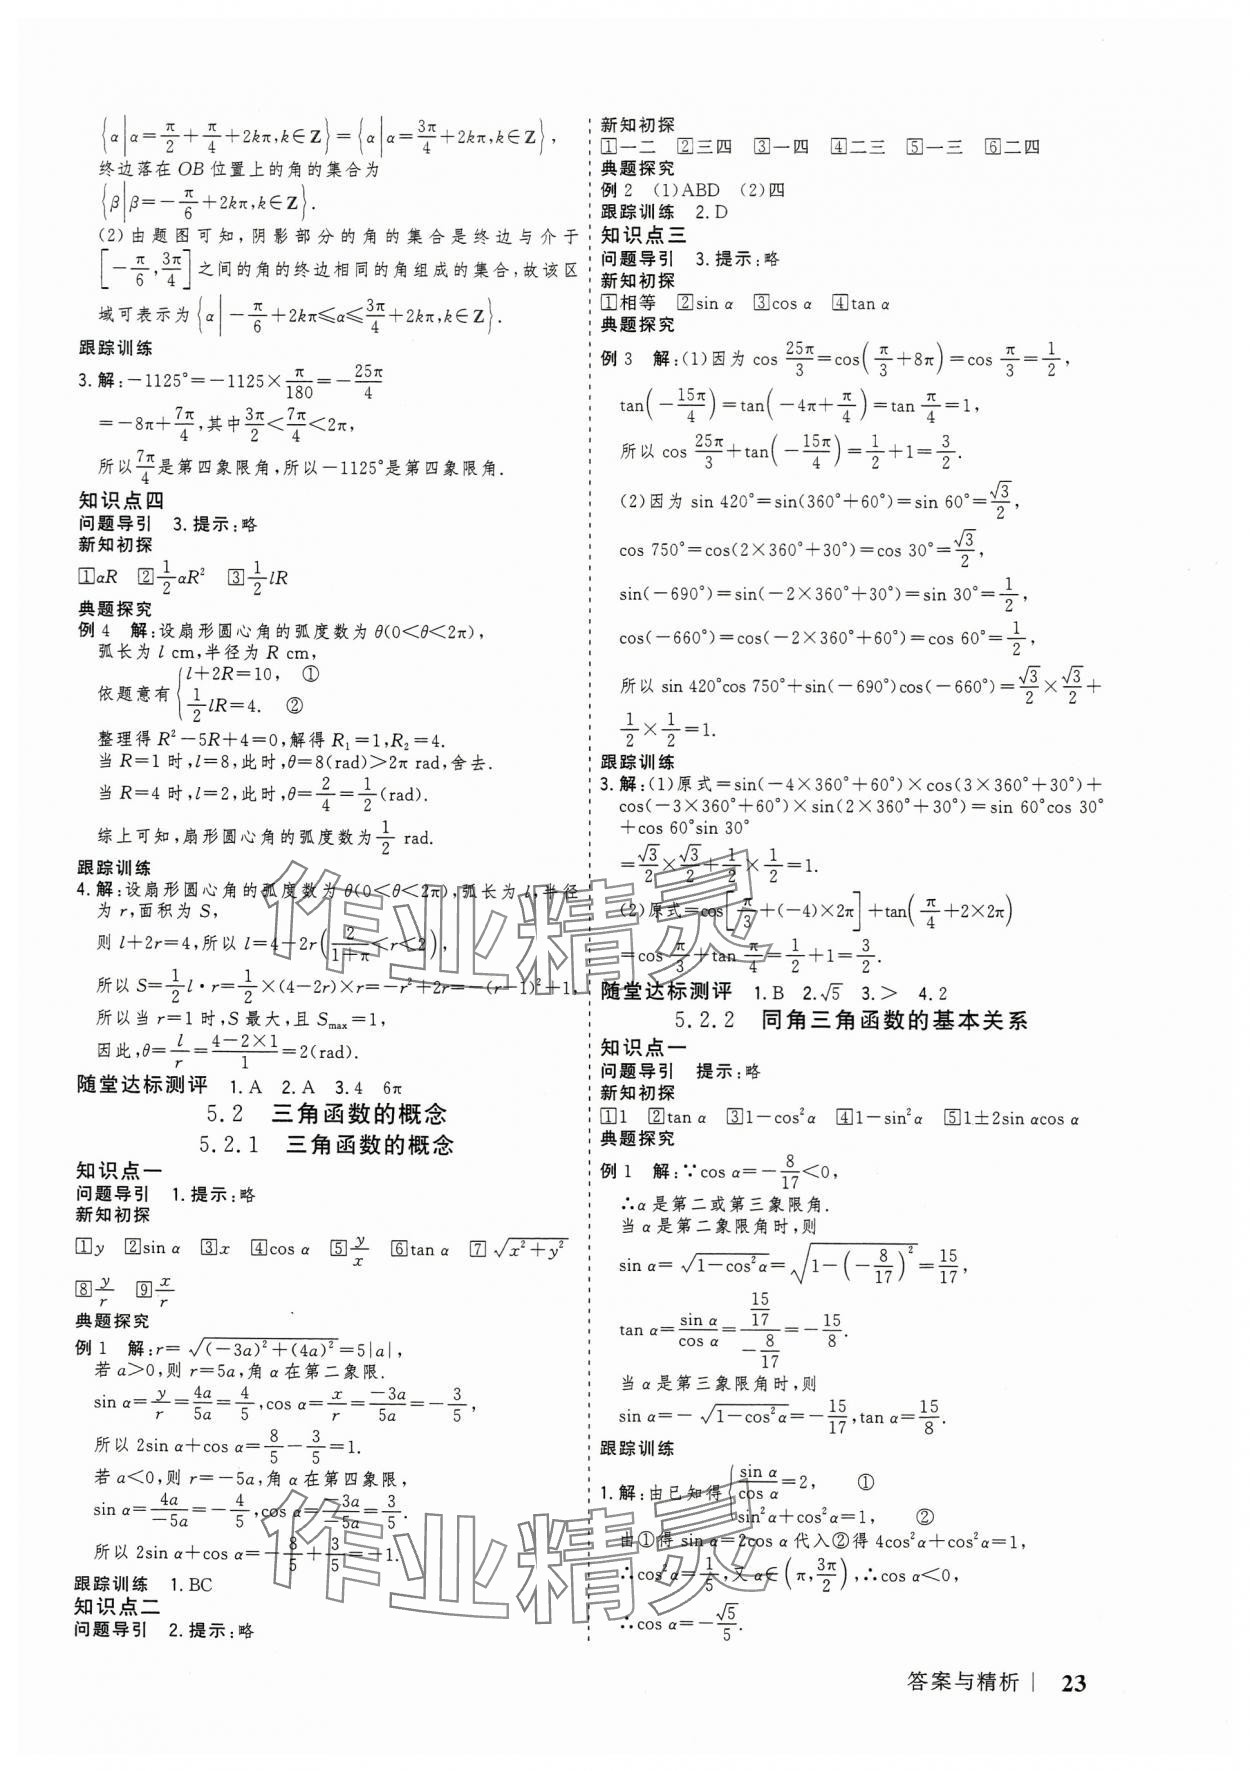 {α|α=π/2+π/4+2kπ,k∈Z}={α|α=3π/4+2kπ,k∈Z},
终边落在 OB 位置上的角的集合为
{β|β=-π/6+2kπ,k∈Z}.
(2)由题图可知,阴影部分的角的集合是终边与介于
[-π/6,3π/4]之间的角的终边相同的角组成的集合,故该区
域可表示为{α|-π/6+2kπ≤α≤3π/4+2kπ,k∈Z}.
跟踪训练
3.解:-1125°=-1125×π/180=-25π/4
=-8π+7π/4,其中3π/2<7π/4<2π,
所以7π/4是第四象限角,所以-1125°是第四象限角.
知识点四
问题导引 3.提示:略
新知初探
1αR 2 1/2 αR² 3 1/2 lR
典题探究
例 4 解:设扇形圆心角的弧度数为 θ(0<θ<2π),
弧长为 l cm,半径为 R cm,
依题意有{l+2R=10, ①
1/2 lR=4. ②
整理得 R²-5R+4=0,解得 R₁=1,R₂=4.
当 R=1 时,l=8,此时,θ=8(rad)>2π rad,舍去.
当 R=4 时,l=2,此时,θ=2/4=1/2(rad).
综上可知,扇形圆心角的弧度数为1/2 rad.
跟踪训练
4.解:设扇形圆心角的弧度数为 θ(0<θ<2π),弧长为 l,半径
为 r,面积为 S,
则 l+2r=4,所以 l=4-2r(2/(1+π)<r<2),
所以 S=1/2 l·r=1/2×(4-2r)×r=-r²+2r=-(r-1)²+1,
所以当 r=1 时,S 最大,且 Smax=1,
因此,θ=l/r=(4-2×1)/1=2(rad).
随堂达标测评 1.A 2.A 3.4 6π
5.2 三角函数的概念
5.2.1 三角函数的概念
知识点一
问题导引 1.提示:略
新知初探
1y 2sin α 3x 4cos α 5 y/x 6tan α 7 √(x²+y²)
8 y/r 9 x/r
典题探究
例 1 解:r=√((-3a)²+(4a)²)=5|a|,
若 a>0,则 r=5a,角 α 在第二象限.
sin α=y/r=4a/5a=4/5,cos α=x/r=-3a/5a=-3/5,
所以 2sin α+cos α=8/5-3/5=1.
若 a<0,则 r=-5a,角 α 在第四象限,
sin α=4a/-5a=-4/5,cos α=-3a/-5a=3/5.
所以 2sin α+cos α=-8/5+3/5=-1.
跟踪训练 1.BC
知识点二
问题导引 2.提示:略
新知初探
1一二 2三四 3一四 4二三 5一三 6二四
典题探究
例 2 (1)ABD (2)四
跟踪训练 2.D
知识点三
问题导引 3.提示:略
新知初探
1相等 2sin α 3cos α 4tan α
典题探究
例 3 解:(1)因为 cos 25π/3=cos(π/3+8π)=cos π/3=1/2,
tan(-15π/4)=tan(-4π+π/4)=tan π/4=1,
所以 cos 25π/3+tan(-15π/4)=1/2+1=3/2.
(2)因为 sin 420°=sin(360°+60°)=sin 60°=√3/2,
cos 750°=cos(2×360°+30°)=cos 30°=√3/2,
sin(-690°)=sin(-2×360°+30°)=sin 30°=1/2,
cos(-660°)=cos(-2×360°+60°)=cos 60°=1/2,
所以 sin 420°cos 750°+sin(-690°)cos(-660°)=√3/2×√3/2+
1/2×1/2=1.
跟踪训练
3.解:(1)原式=sin(-4×360°+60°)×cos(3×360°+30°)+
cos(-3×360°+60°)×sin(2×360°+30°)=sin 60°cos 30°
+cos 60°sin 30°
=√3/2×√3/2+1/2×1/2=1.
(2)原式=cos[π/3+(-4)×2π]+tan(π/4+2×2π)
=cos π/3+tan π/4=1/2+1=3/2.
随堂达标测评 1.B 2.√5 3.> 4.2
5.2.2 同角三角函数的基本关系
知识点一
问题导引 提示:略
新知初探
1 1 2tan α 3 1-cos²α 4 1-sin²α 5 1±2sin αcos α
典题探究
例 1 解:∵cos α=-8/17<0,
∴α 是第二或第三象限角.
当 α 是第二象限角时,则
sin α=√(1-cos²α)=√(1-(-8/17)²)=15/17,
tan α=sin α/cos α=(15/17)/(-8/17)=-15/8.
当 α 是第三象限角时,则
sin α=-√(1-cos²α)=-15/17,tan α=15/8.
跟踪训练
1.解:由已知得{sin α/cos α=2, ①
sin²α+cos²α=1, ②
由①得 sin α=2cos α代入②得 4cos²α+cos²α=1,
∴cos²α=1/5,又 α∈(π,3π/2),∴cos α<0,
∴cos α=-√5/5.
答案与精析 | 23
作业精灵
作业精灵